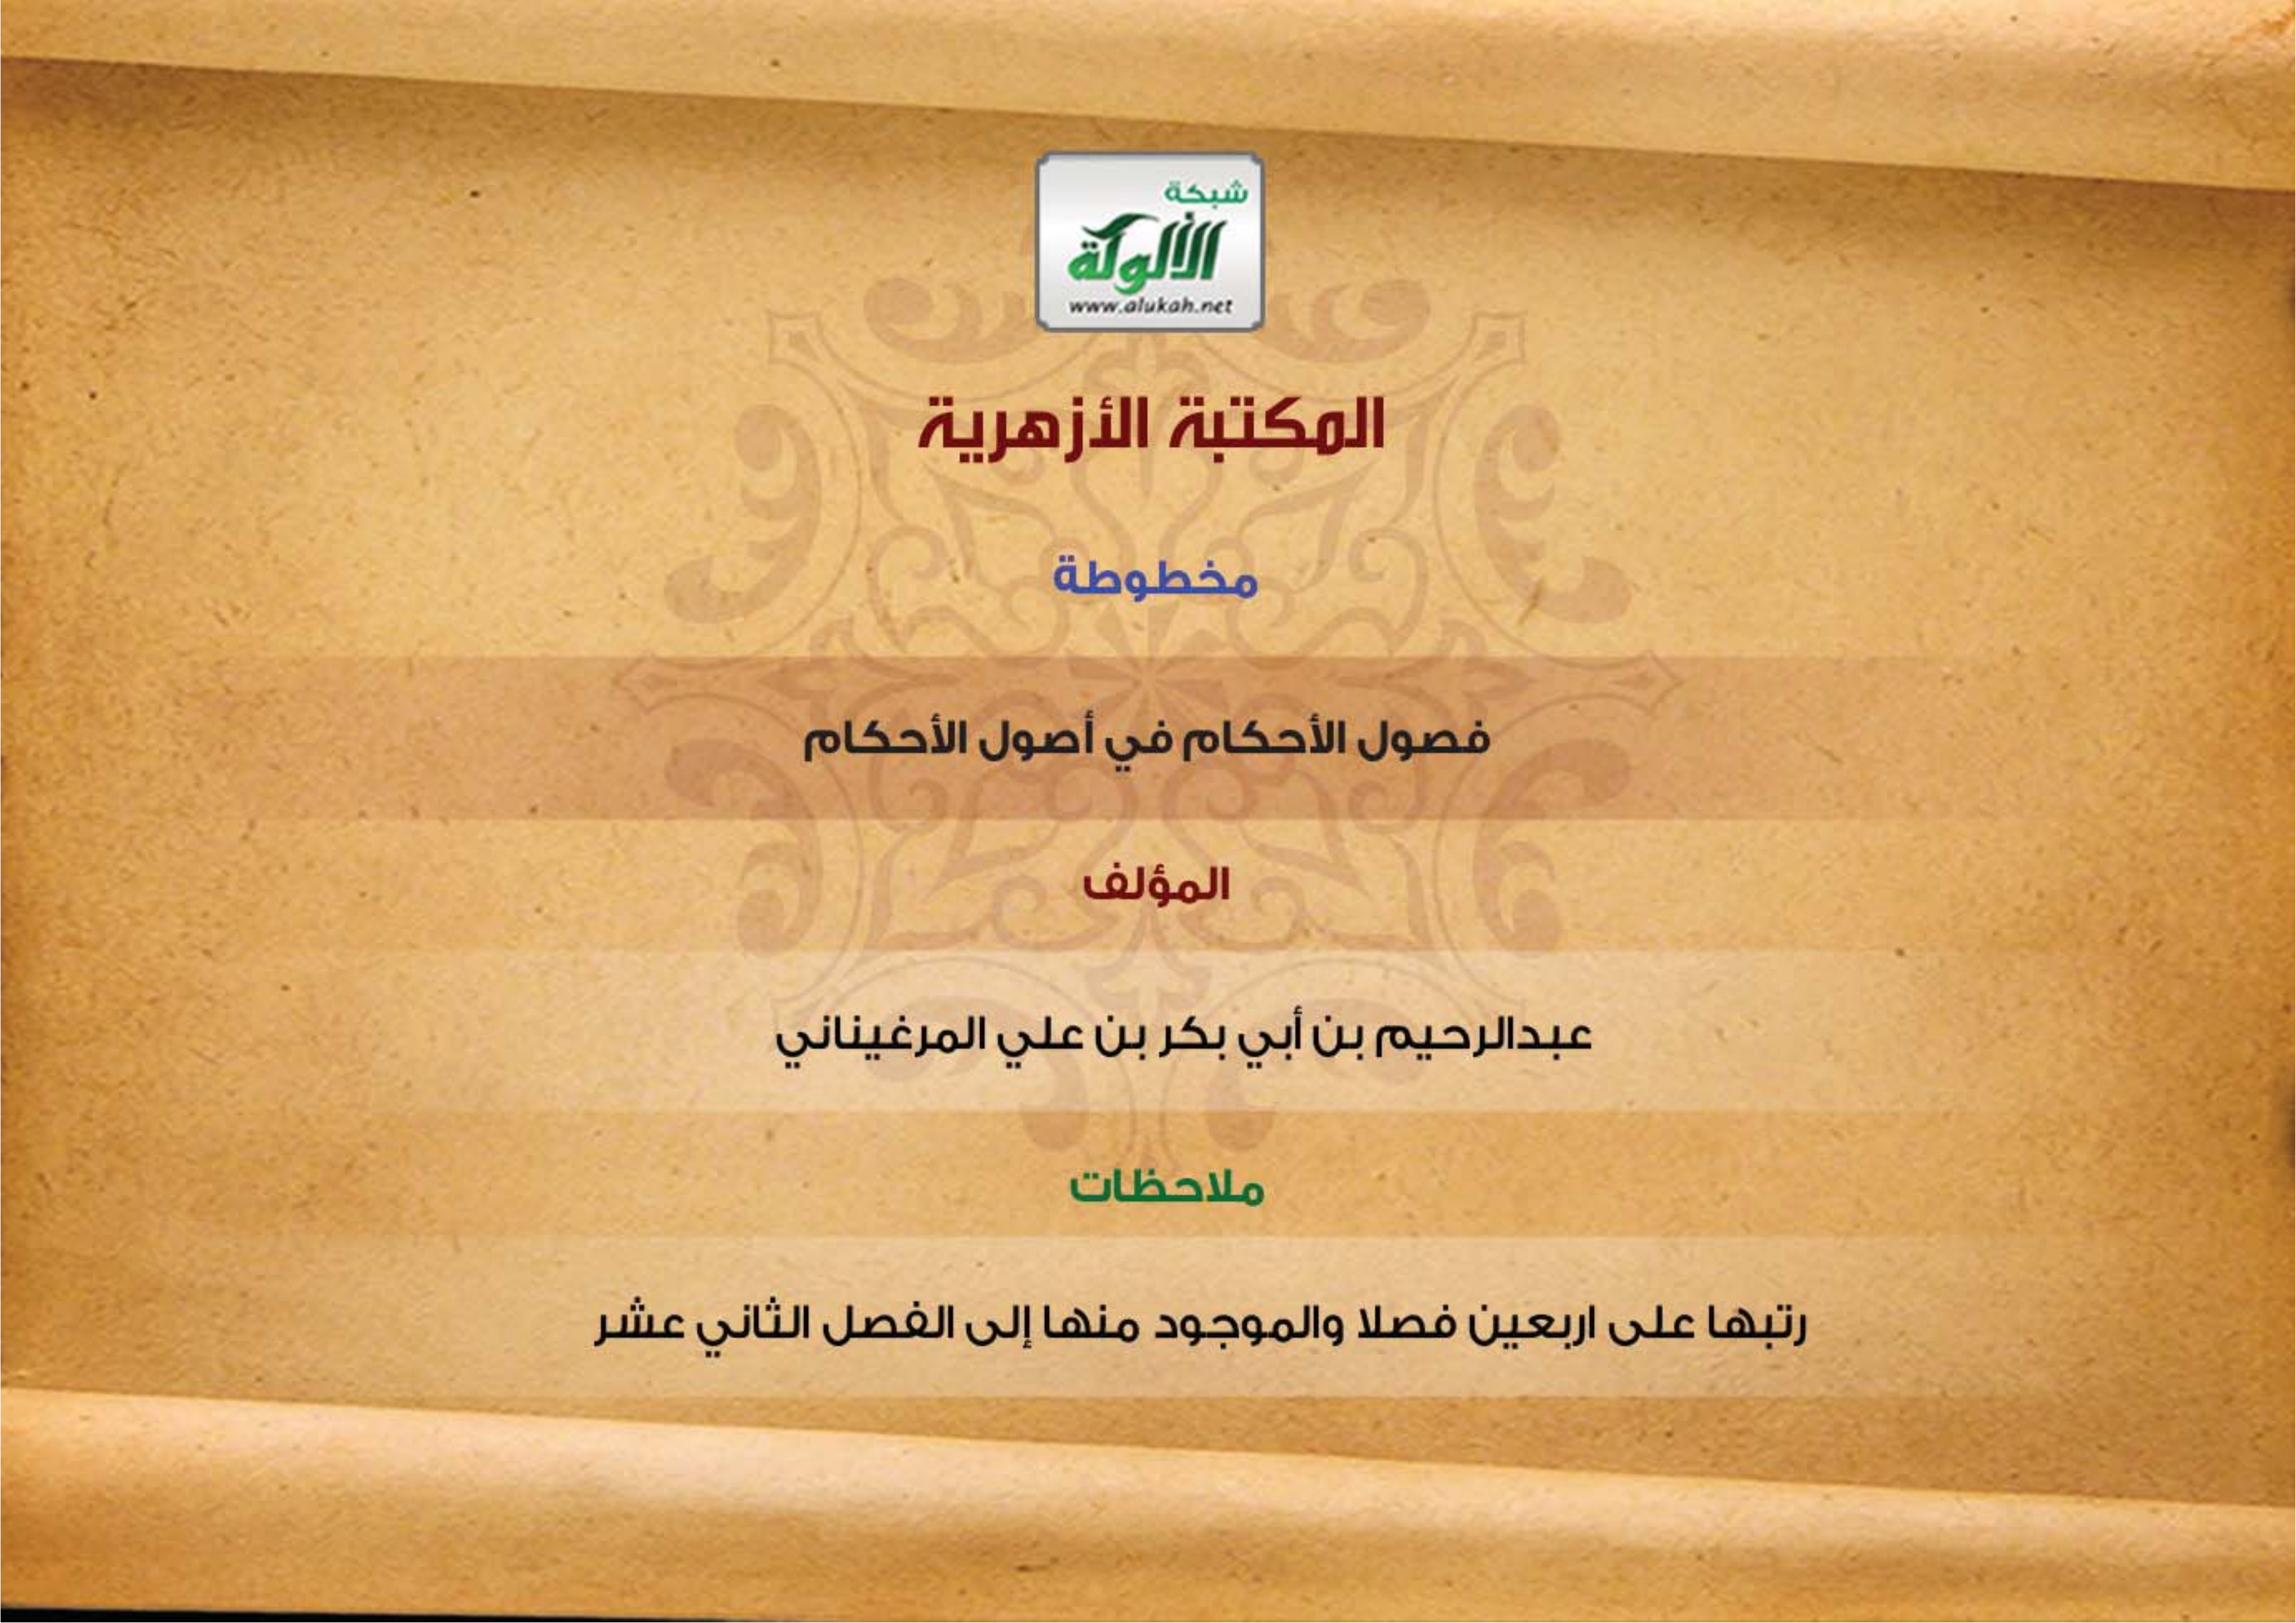 شبكة
الألوكة
www.alukah.net
المكتبة الأزهرية
مخطوطة
فصول الأحكام في أصول الأحكام
المؤلف
عبدالرحيم بن أبي بكر بن علي المرغيناني
ملاحظات
رتبها على اربعين فصلا والموجود منها إلى الفصل الثاني عشر